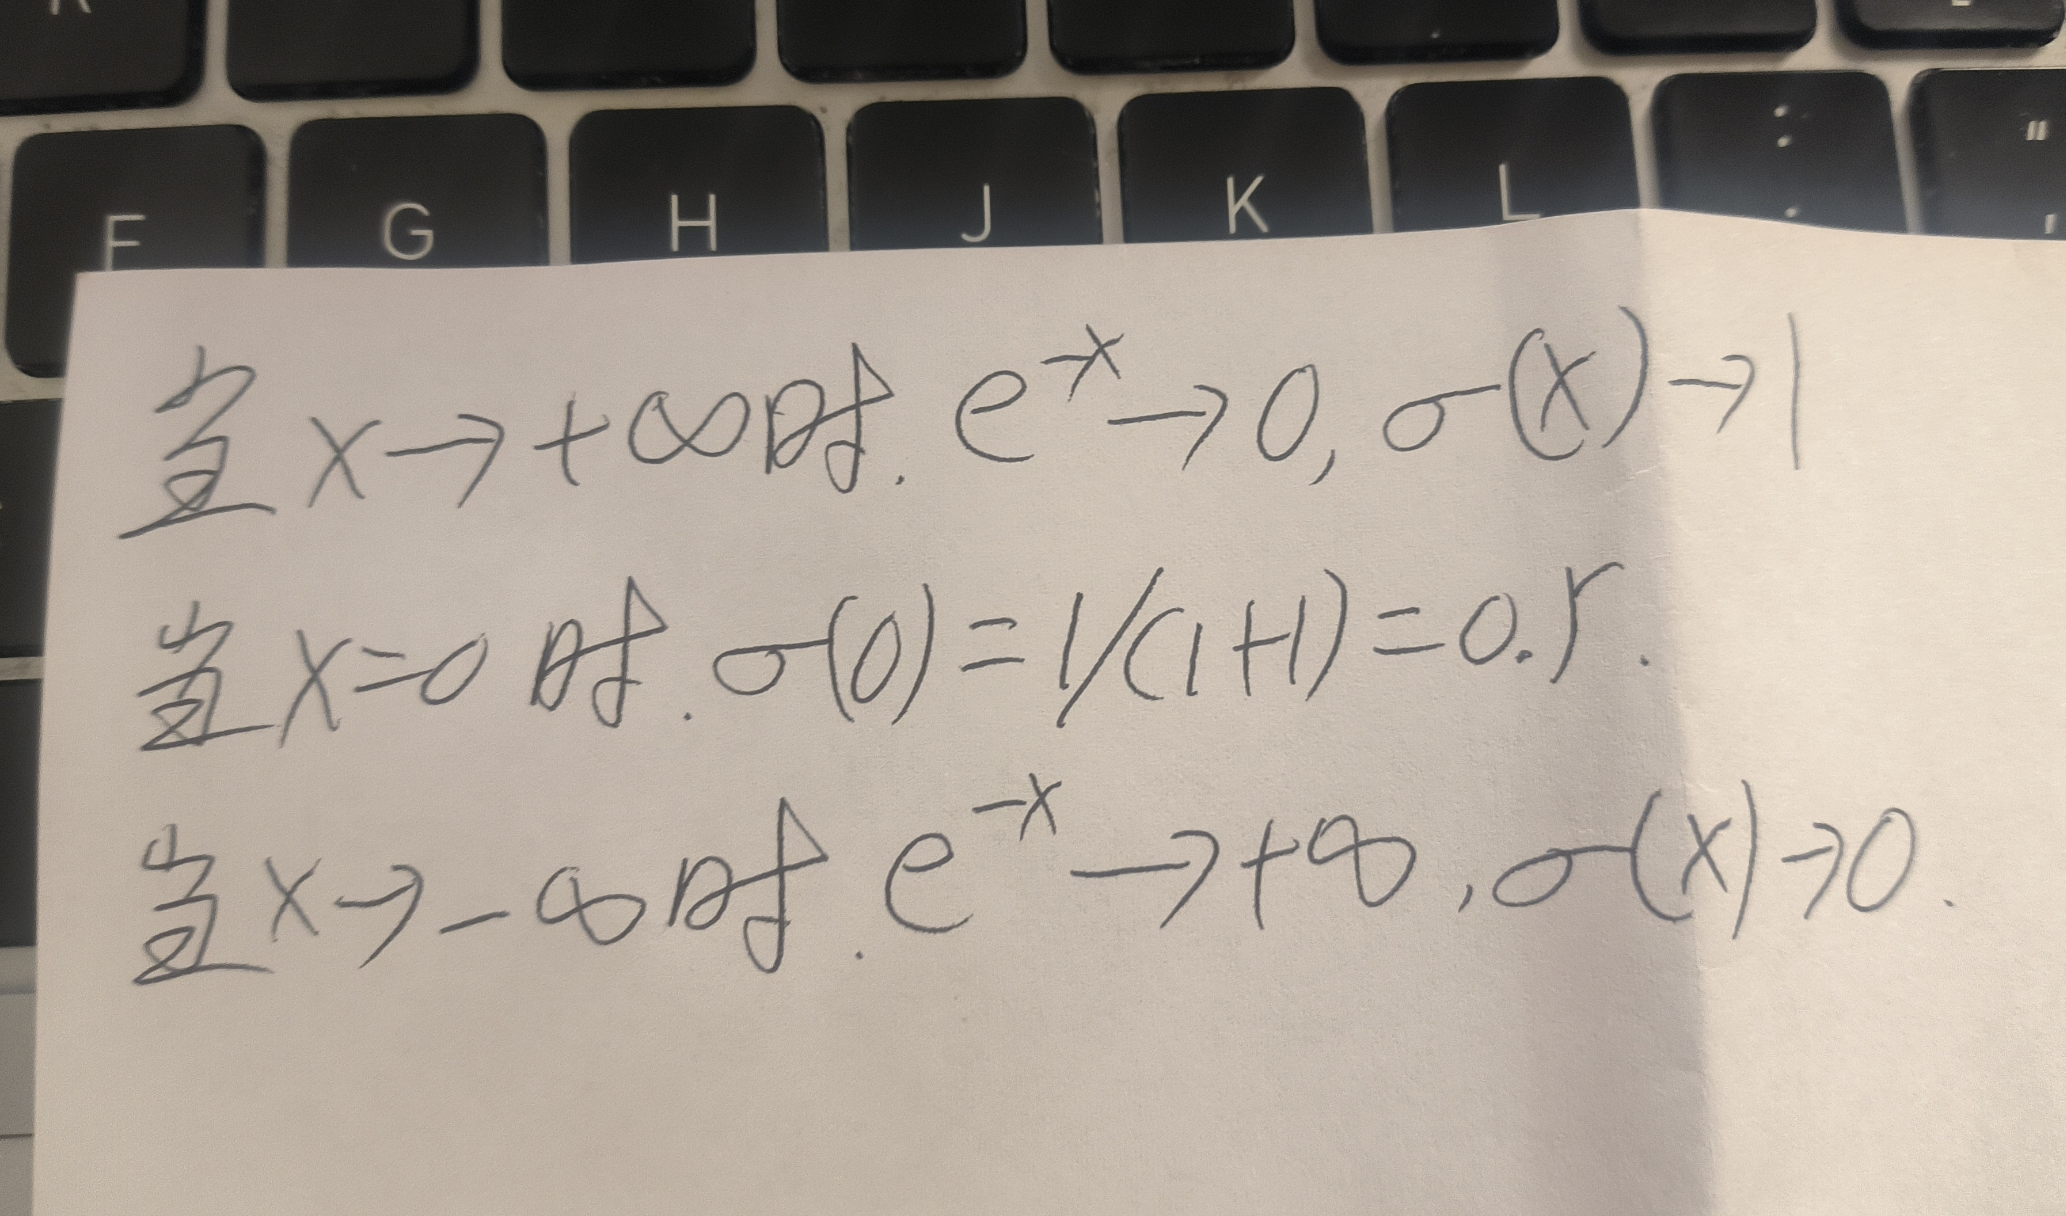 F G H J K L : "
当 x→+∞时. e^-x→0, σ(x)→1
当 x=0 时. σ(0)=1/(1+1)=0.5.
当 x→-∞时. e^-x→+∞, σ(x)→0.